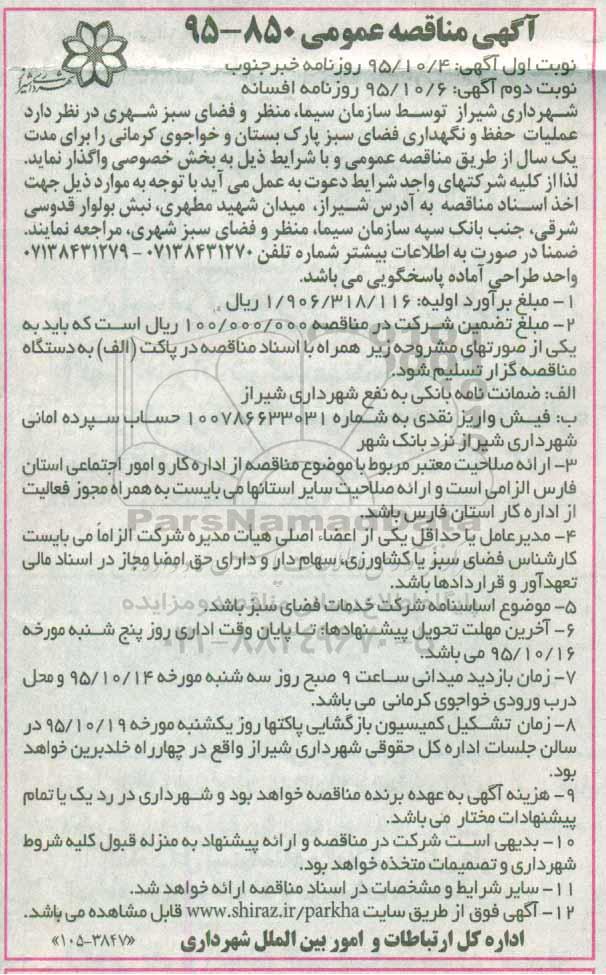 آگهی مناقصه عمومی ۸۵۰-۹۵
نوبت اول آگهی: ۹۵/۱۰/۴ روزنامه خبرجنوب
نوبت دوم آگهی: ۹۵/۱۰/۶ روزنامه افسانه
شهرداری شیراز
شهرداری شیراز توسط سازمان سیما، منظر و فضای سبز شهری در نظر دارد
عملیات حفظ و نگهداری فضای سبز پارک بستان و خواجوی کرمانی را برای مدت
یک سال از طریق مناقصه عمومی و با شرایط ذیل به بخش خصوصی واگذار نماید.
لذا از کلیه شرکتهای واجد شرایط دعوت به عمل می آید با توجه به موارد ذیل جهت
اخذ اسناد مناقصه به آدرس شیراز، میدان شهید مطهری، نبش بولوار قدوسی
شرقی، جنب بانک سپه سازمان سیما، منظر و فضای سبز شهری، مراجعه نمایند.
ضمنا در صورت به اطلاعات بیشتر شماره تلفن ۰۷۱۳۸۴۳۱۲۷۰ - ۰۷۱۳۸۴۳۱۲۷۹
واحد طراحی آماده پاسخگویی می باشد.
۱- مبلغ برآورد اولیه: ۱/۹۰۶/۳۱۸/۱۱۶ ریال
۲- مبلغ تضمین شرکت در مناقصه ۱۰۰/۰۰۰/۰۰۰ ریال است که باید به
یکی از صورتهای مشروحه زیر همراه با اسناد مناقصه در پاکت (الف) به دستگاه
مناقصه گزار تسلیم شود.
الف: ضمانت نامه بانکی به نفع شهرداری شیراز
ب: فیش واریز نقدی به شماره ۱۰۰۷۸۶۶۳۳۰۳۱ حساب سپرده امانی
شهرداری شیراز نزد بانک شهر
۳- ارائه صلاحیت معتبر مربوط با موضوع مناقصه از اداره کار و امور اجتماعی استان
فارس الزامی است و ارائه صلاحیت سایر استانها می بایست به همراه مجوز فعالیت
از اداره کار استان فارس باشد.
ParsNamadData
۴- مدیرعامل یا حداقل یکی از اعضاء اصلی هیات مدیره شرکت الزاماً می بایست
کارشناس فضای سبز یا کشاورزی، سهام دار و دارای حق امضا مجاز در اسناد مالی
تعهدآور و قراردادها باشد.
۵- موضوع اساسنامه شرکت خدمات فضای سبز باشد.
۶- آخرین مهلت تحویل پیشنهادها: تا پایان وقت اداری روز پنج شنبه مورخه
۹۵/۱۰/۱۶ می باشد.
۷- زمان بازدید میدانی ساعت ۹ صبح روز سه شنبه مورخه ۹۵/۱۰/۱۴ و محل
درب ورودی خواجوی کرمانی می باشد.
۸- زمان تشکیل کمیسیون بازگشایی پاکتها روز یکشنبه مورخه ۹۵/۱۰/۱۹ در
سالن جلسات اداره کل حقوقی شهرداری شیراز واقع در چهارراه خلدبرین خواهد
بود.
۹- هزینه آگهی به عهده برنده مناقصه خواهد بود و شهرداری در رد یک یا تمام
پیشنهادات مختار می باشد.
۱۰- بدیهی است شرکت در مناقصه و ارائه پیشنهاد به منزله قبول کلیه شروط
شهرداری و تصمیمات متخذه خواهد بود.
۱۱- سایر شرایط و مشخصات در اسناد مناقصه ارائه خواهد شد.
۱۲- آگهی فوق از طریق سایت www.shiraz.ir/parkha قابل مشاهده می باشد.
اداره کل ارتباطات و امور بین الملل شهرداری
«۱۰۵-۳۸۴۷»